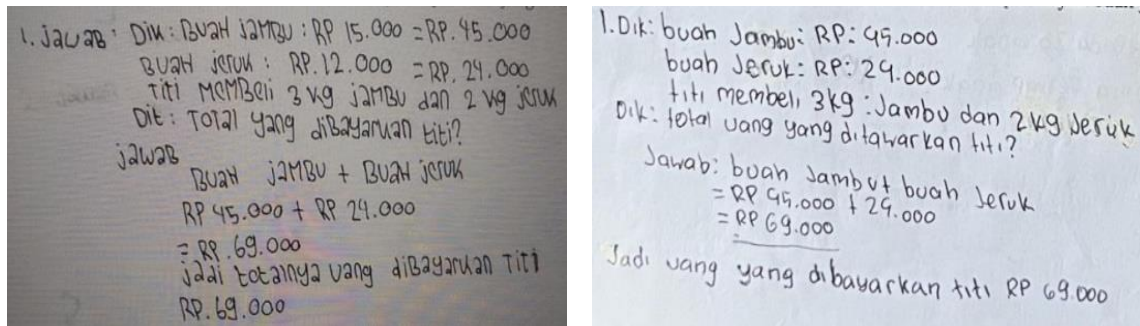 1. Jawab : Dik : BUAH JAMBU : RP 15.000 = RP. 45.000
BUAH jeruk : RP. 12.000 = RP. 24.000
TiTi MEMBeli 3 kg JAMBU dan 2 kg jeruk
Dit : TOTAl yang diBAyarkan titi?
jawab
BUAH JAMBU + BUAH jeruk
RP 45.000 + RP 24.000
= RP. 69.000
jadi totalnya uang diBayarkan TiTi
RP. 69.000
1. Dik : buah Jambu : RP : 45.000
buah Jeruk : RP : 24.000
titi membeli 3kg : Jambu dan 2kg Jeruk
Dik : total uang yang ditawarkan titi?
Jawab : buah Jambu + buah Jeruk
= RP 45.000 + 24.000
= RP 69.000
Jadi uang yang dibayarkan titi RP 69.000